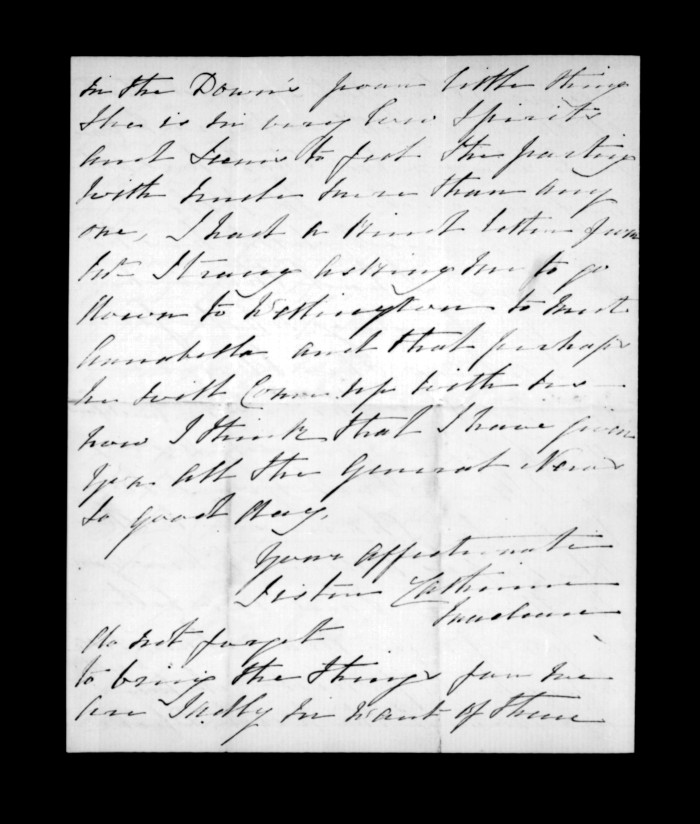 in the Down's poor little thing
she is in very low spirits
and seems to feel the parting
with much more than any
one, I had a kind letter from
Mr Strang asking me to go
down to Wellington to meet
Annabella and that perhaps
he will come up with us
now I think that I have given
you all the General News
so good day,
Your affectionate
Sister Catherine
Maclean
do not forget
to bring the things for me
am sadly in want of them